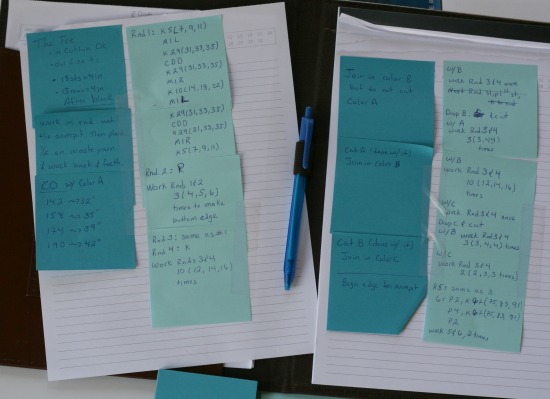 The Tee
Rnd 1: K5(7,9,11)
M1L
K29(31,33,35)
CDD
K29(31,33,35)
M1R
K10(14,18,22)
M1L
K29(31,33,35)
CDD
K29(31,33,35)
M1R
K5(7,9,11)
Rnd 2: P
Work Rnds 1&2
3(4,5,6)
times to make
bottom edge
Rnd 3: same as #1
Rnd 4: K
Work Rnds 3&4
10(12,14,16)
times
18sts=4in
work in rnd until
the armpit. Then place
on waste yarn
& work back & forth
CO w/ Color A
142 → 32"
158 → 35"
174 → 39"
190 → 42"
Join in color B
but do not cut
Color A
Join in Color B
Cut B (done w/ it)
Join in Color C
Begin edge for armpit
w/B
work Rnd 3&4 once
Drop B & cut
w/A
work Rnd 3&4
times
w/B
work Rnd 3&4
10(12,14,16)
times
w/C
work Rnd 3&4 once
Drop C & cut
w/B work Rnd 3&4
3(3,4,4) times
w/C
work Rnd 3&4
2(2,3,3 times)
R5: same as 3
6: P2, K67(75,83,91)
P4, K67(75,83,91)
P2
work 5&6, 2 times